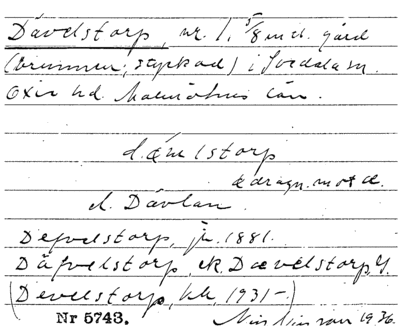 Dävelstorp, nr. 1, 5/8 md. gård
(brunnen; styckad) i Svedala sn.
Oxie hd. Malmöhus län.
d.
ä dragn. mot æ.
d. Dävlan.
Defvelstorp, jr. 1881.
Däfvelstorp, ek. Dævelstorp, G
(Develstorp, kk, 1931-.)
Nr 5743.
1936.